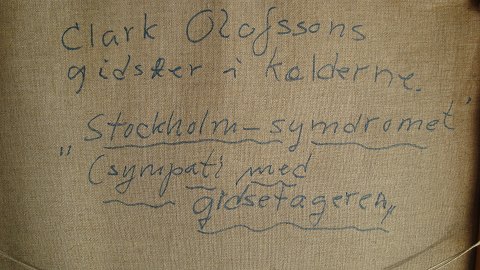 Clark Olofssons
gidsler i kælderne.
„Stockholm-symdromet"
(sympati med
gidsetageren„